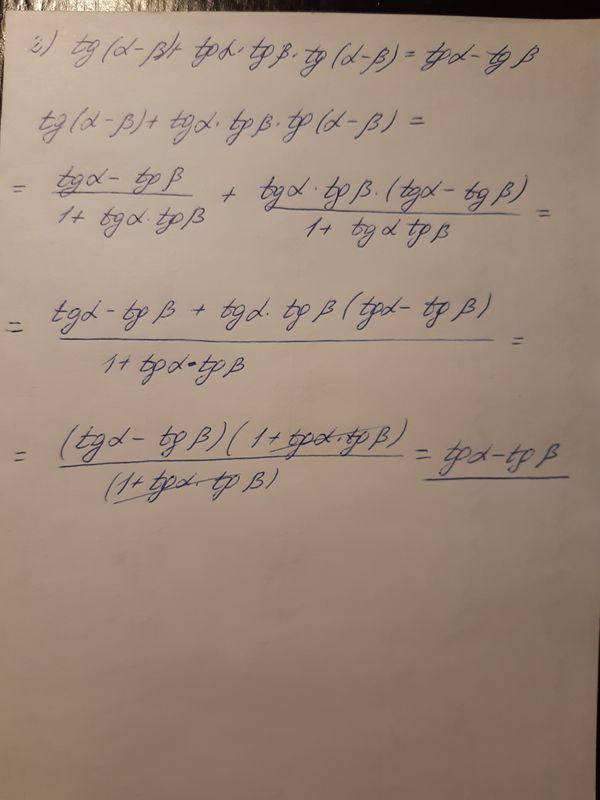 2) tg(α-β)+ tgα·tgβ·tg(α-β) = tgα-tgβ
tg(α-β)+tgα·tgβ·tg(α-β) =
= (tgα-tgβ)/(1+tgα·tgβ) + (tgα·tgβ·(tgα-tgβ))/(1+tgα tgβ) =
= (tgα-tgβ + tgα·tgβ(tgα-tgβ))/(1+tgα·tgβ) =
= ((tgα-tgβ)(1+tgα·tgβ))/((1+tgα·tgβ)) = tgα-tgβ